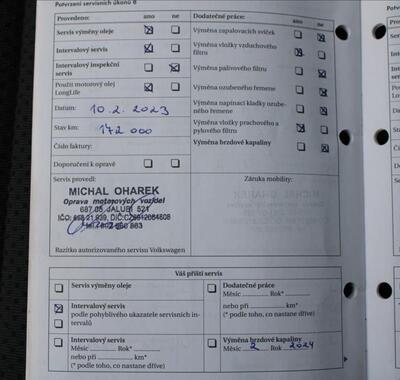 Potvrzení servisních úkonů 8
Provedeno: ano ne
Servis výměny oleje
Intervalový servis
Intervalový inspekční
servis
Použit motorový olej
LongLife
Datum: 10.2.2023
Stav km: 172 000
Číslo faktury:
Doporučení k opravě
Dodatečné práce: ano ne
Výměna zapalovacích svíček
Výměna vložky vzduchového
filtru
Výměna palivového filtru
Výměna ozubeného řemene
Výměna napínací kladky ozube-
ného řemene
Výměna vložky prachového a
pylového filtru
Výměna brzdové kapaliny
Servis provedl:
MICHAL OHAREK
Oprava motorových vozidel
687 05 JALUBÍ 521
Razítko autorizovaného servisu Volkswagen
Záruka mobility:
Váš příští servis
Servis výměny oleje
Intervalový servis
podle pohyblivého ukazatele servisních in-
tervalů
Intervalový servis
Měsíc Rok*
nebo při km*
(* podle toho, co nastane dříve)
Dodatečné práce
Měsíc Rok*
nebo při km*
(* podle toho, co nastane dříve)
Výměna brzdové kapaliny
Měsíc 2 Rok 2024